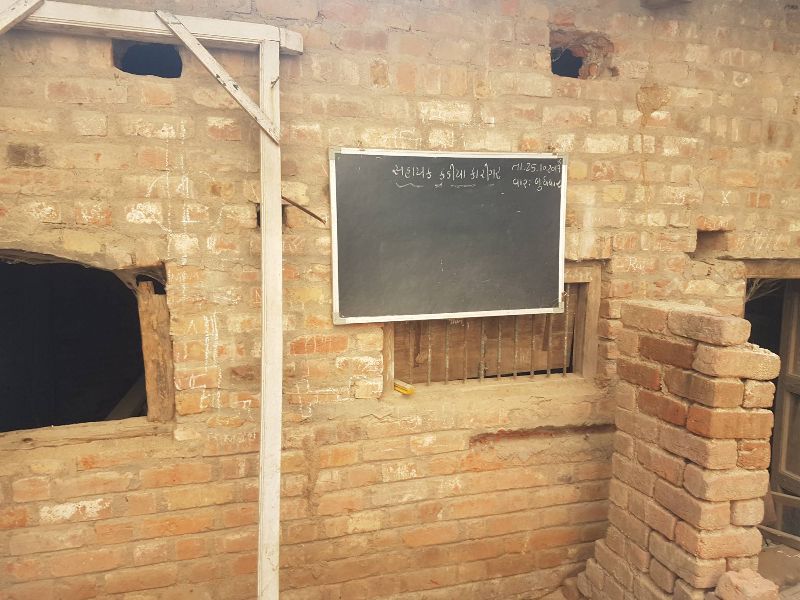 સહાયક કડીયા કારીગર
તા.25.10.2017
વાર: બુધવાર